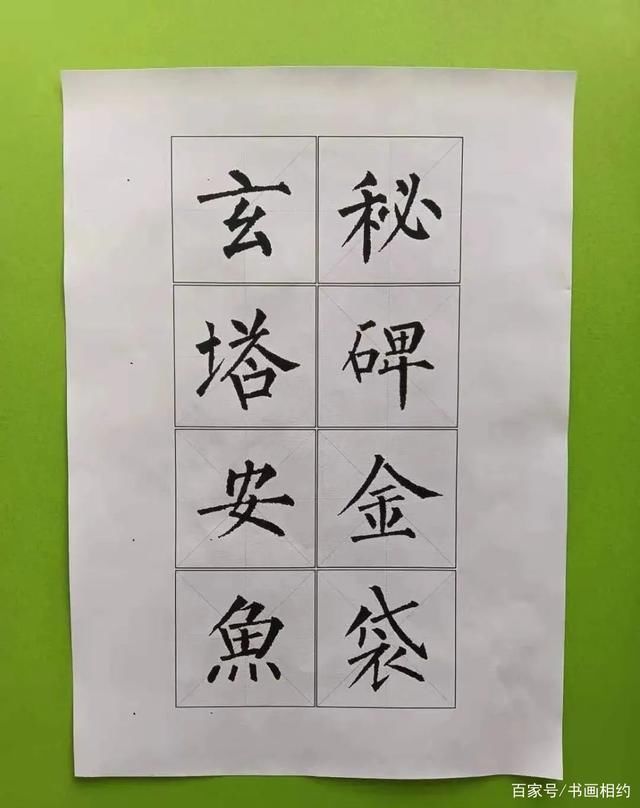 玄秘
塔碑
安金
魚袋
百家号/书画相约